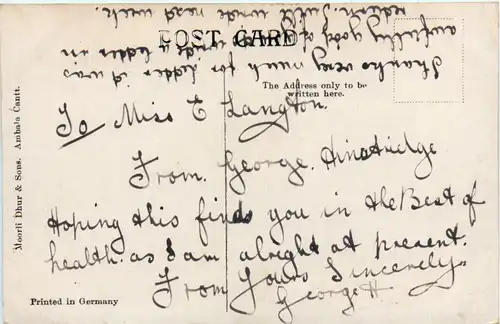 POST CARD
The Address only to be
written here.
To Miss E Langton.
From. George. Hinstridge
Hoping this finds you in the Best of
health. as I am alright at present.
From Yours Sincerely
George H
Thanks very much for letter it was
awfully good of you write a letter in
return. will write next week.
Moorli Dhur & Sons. Ambala Cantt.
Printed in Germany